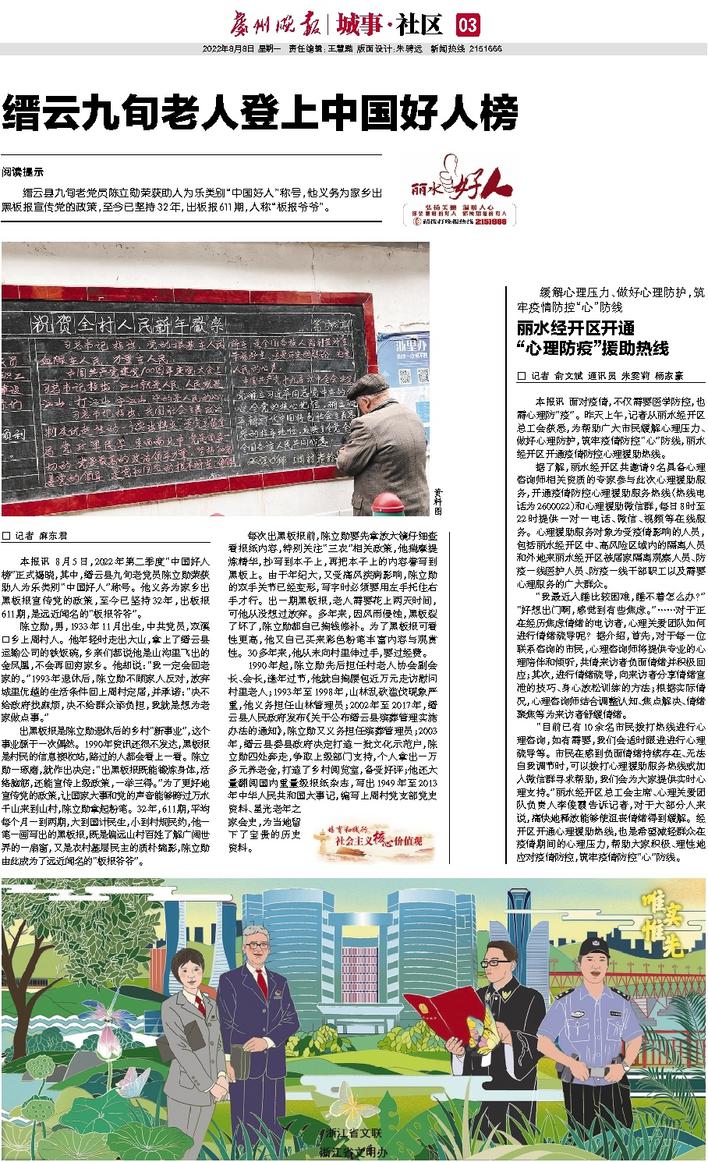 处州晚报 城事·社区 03
2022年8月8日 星期一 责任编辑：王慧璐 版面设计：朱骋远 新闻热线 2151666
缙云九旬老人登上中国好人榜
阅读提示
缙云县九旬老党员陈立勋荣获助人为乐类别“中国好人”称号，他义务为家乡出
黑板报宣传党的政策，至今已坚持32年，出板报611期，人称“板报爷爷”。
丽水好人
祝贺全村人民新年欢乐
资料图
□ 记者 麻东君
本报讯 8月5日，2022年第二季度“中国好人
榜”正式揭晓，其中，缙云县九旬老党员陈立勋荣获
助人为乐类别“中国好人”称号。他义务为家乡出
黑板报宣传党的政策，至今已坚持32年，出板报
611期，是远近闻名的“板报爷爷”。
陈立勋，男，1933年11月出生，中共党员，双溪
口乡上周村人。他年轻时走出大山，拿上了缙云县
运输公司的铁饭碗，乡亲们都说他是山沟里飞出的
金凤凰，不会再回穷家乡。他却说：“我一定会回老
家的。”1993年退休后，陈立勋不顾家人反对，放弃
城里优越的生活条件回上周村定居，并承诺：“决不
给政府找麻烦，决不给群众添负担，我就是想为老
家做点事。”
出黑板报是陈立勋退休后的乡村“新事业”，这个
事业源于一次偶然。1990年资讯还很不发达，黑板报
是村民的信息接收站，路过的人都会看上一看。陈立
勋一琢磨，就作出决定：“出黑板报既能锻炼身体，活
络脑筋，还能宣传上级政策，一举三得。”为了更好地
宣传党的政策，让国家大事和党的声音能够跨过万水
千山来到山村，陈立勋拿起粉笔。32年，611期，平均
每个月一到两期，大到国计民生，小到村规民约，他一
笔一画写出的黑板报，既是偏远山村百姓了解广阔世
界的一扇窗，又是农村基层民主的质朴缩影，陈立勋
由此成为了远近闻名的“板报爷爷”。
每次出黑板报前，陈立勋要先拿放大镜仔细查
看报纸内容，特别关注“三农”相关政策，他揣摩提
炼精华，抄写到本子上，再把本子上的内容誊写到
黑板上。由于年纪大，又受痛风疾病影响，陈立勋
的双手关节已经变形，写字时必须要用左手托住右
手才行。出一期黑板报，老人需要花上两天时间，
可他从没想过放弃。多年来，因风雨侵蚀，黑板裂
了坏了，陈立勋都自己掏钱修补。为了黑板报可看
性更高，他又自己买来彩色粉笔丰富内容与观赏
性。30多年来，他从未向村里伸过手，要过经费。
1990年起，陈立勋先后担任村老人协会副会
长、会长，逢年过节，他就自掏腰包近万元走访慰问
村里老人；1993年至1998年，山林乱砍滥伐现象严
重，他义务担任山林管理员；2002年至2017年，缙
云县人民政府发布《关于公布缙云县殡葬管理实施
办法的通知》，陈立勋又义务担任殡葬管理员；2003
年，缙云县委县政府决定打造一批文化示范户，陈
立勋四处奔走，争取上级部门支持，个人拿出一万
多元养老金，打造了乡村阅览室，备受好评；他还大
量翻阅国内重量级报纸杂志，写出1949年至2013
年中华人民共和国大事记，编写上周村党支部党史
资料、星光老年之
家会史，为当地留
下了宝贵的历史
资料。
培育和践行
社会主义核心价值观
缓解心理压力、做好心理防护，筑
牢疫情防控“心”防线
丽水经开区开通
“心理防疫”援助热线
□ 记者 俞文斌 通讯员 朱雯莉 杨家豪
本报讯 面对疫情，不仅需要医学防控，也
需心理防“疫”。昨天上午，记者从丽水经开区
总工会获悉，为帮助广大市民缓解心理压力、
做好心理防护，筑牢疫情防控“心”防线，丽水
经开区开通疫情防控心理援助热线。
据了解，丽水经开区共邀请9名具备心理
咨询师相关资质的专家参与此次心理援助服
务，开通疫情防控心理援助服务热线（热线电
话为2600022）和心理援助微信群，每日8时至
22时提供一对一电话、微信、视频等在线服
务。心理援助服务对象为受疫情影响的人员，
包括丽水经开区中、高风险区域内的隔离人员
和外地来丽水经开区被居家隔离观察人员、防
疫一线医护人员、防疫一线干部职工以及需要
心理服务的广大群众。
“我最近入睡比较困难，睡不着怎么办？”
“好想出门啊，感觉到有些焦虑。”……对于正
在经历焦虑情绪的电访者，心理关爱团队如何
进行情绪疏导呢？据介绍，首先，对于每一位
联系咨询的市民，心理咨询师将提供专业的心
理陪伴和倾听，共情来访者负面情绪并积极回
应；其次，进行情绪疏导，向来访者分享情绪宣
泄的技巧、身心放松训练的方法；根据实际情
况，心理咨询师结合调整认知、焦点解决、情绪
聚焦等为来访者舒缓情绪。
“目前已有10余名市民拨打热线进行心
理咨询，如有需要，我们会适时跟进进行心理
疏导等。市民在感到负面情绪持续存在、无法
自我调节时，可以拨打心理援助服务热线或加
入微信群寻求帮助，我们会为大家提供实时心
理支持。”丽水经开区总工会主席、心理关爱团
队负责人李俊霞告诉记者，对于大部分人来
说，痛快地释放能够使沮丧情绪得到缓解。经
开区开通心理援助热线，也是希望减轻群众在
疫情期间的心理压力，帮助大家积极、理性地
应对疫情防控，筑牢疫情防控“心”防线。
唯实
惟先
浙江省文联
浙江省文明办